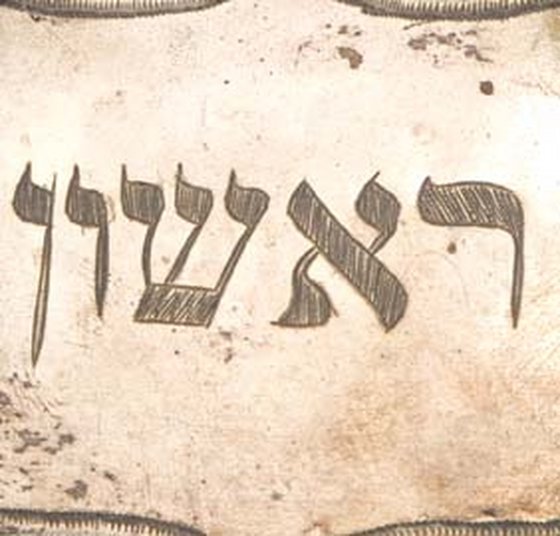 ראשון